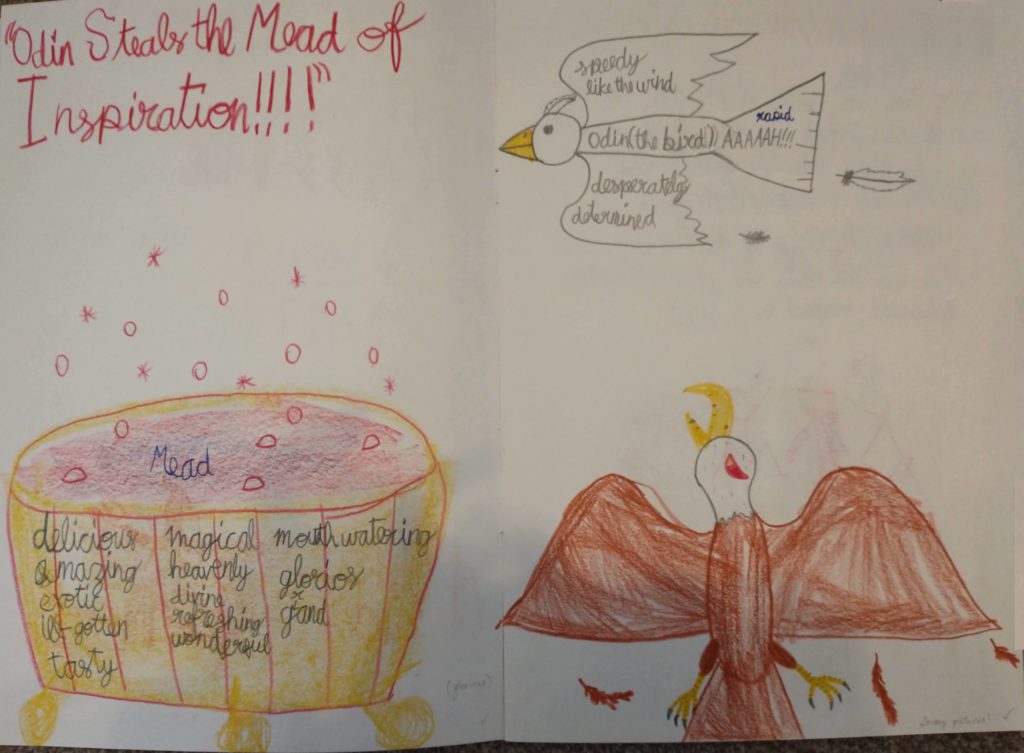 "Odin Steals the Mead of
Inspiration!!!!"
Mead
delicious
amazing
exotic
ill-gotten
tasty
magical
heavenly
divine
refreshing
wonderful
mouthwatering
glorios
grand
(glorious)
speedy
like the wind
Odin (the bird!) AAAAAH!!!
rapid
desperately
determined
Lovely pictures!